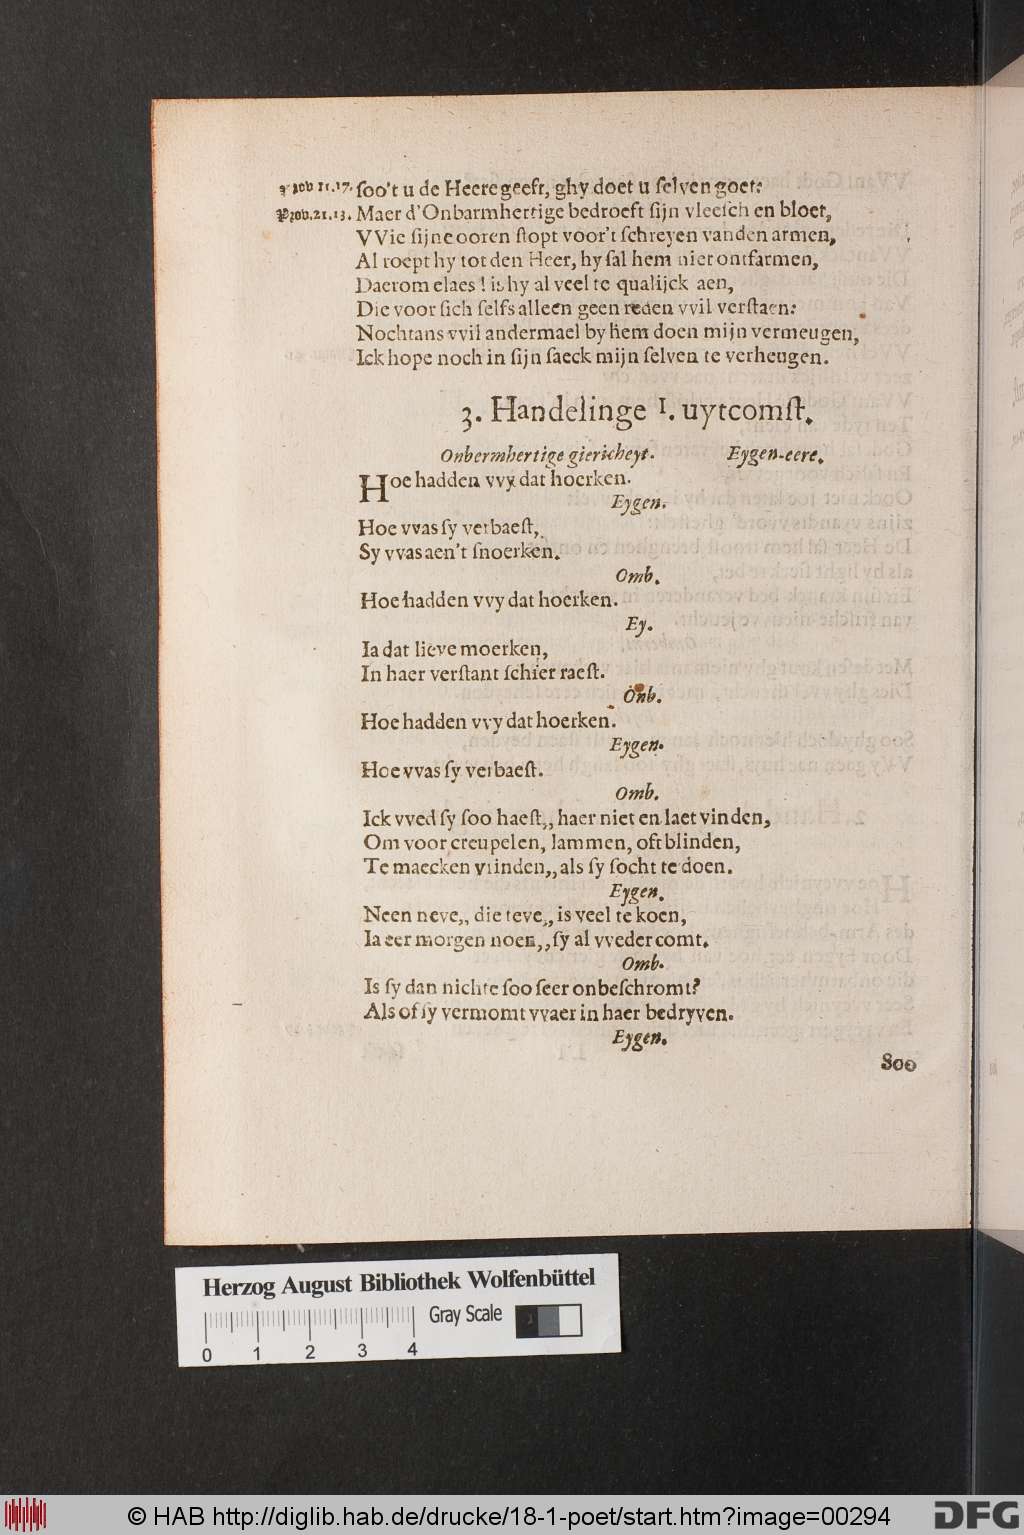 Prov 11.17. ſoo't u de Heere geeft, ghy doet u ſelven goet:
Prov. 21.13. Maer d'Onbarmhertige bedroeft ſijn vleeſch en bloet,
VVie ſijne ooren ſtopt voor't ſchreyen vanden armen,
Al roept hy tot den Heer, hy ſal hem niet ontfarmen,
Daerom elaes! is hy al veel te qualijck aen,
Die voor ſich ſelfs alleen geen reden vvil verſtaen:
Nochtans vvil andermael by hem doen mijn vermeugen,
Ick hope noch in ſijn ſaeck mijn ſelven te verheugen.
3. Handelinge I. uytcomſt.
Onbermhertige giericheyt. Eygen-eere.
Hoe hadden vvy dat hoerken.
Eygen.
Hoe vvas ſy verbaeſt,
Sy vvas aen't ſnoerken.
Omb.
Hoe hadden vvy dat hoerken.
Ey.
Ia dat lieve moerken,
In haer verſtant ſchier raeſt.
Onb.
Hoe hadden vvy dat hoerken.
Eygen.
Hoe vvas ſy verbaeſt.
Omb.
Ick vved ſy ſoo haeſt,, haer niet en laet vinden,
Om voor creupelen, lammen, oft blinden,
Te maecken vrinden,, als ſy ſocht te doen.
Eygen.
Neen neve,, die teve,, is veel te koen,
Ia eer morgen noen,, ſy al vveder comt.
Omb.
Is ſy dan nichte ſoo ſeer onbeſchromt?
Als of ſy vermomt vvaer in haer bedryven.
Eygen.
Soo
Herzog August Bibliothek Wolfenbüttel
Gray Scale
0 1 2 3 4
© HAB http://diglib.hab.de/drucke/18-1-poet/start.htm?image=00294
DFG